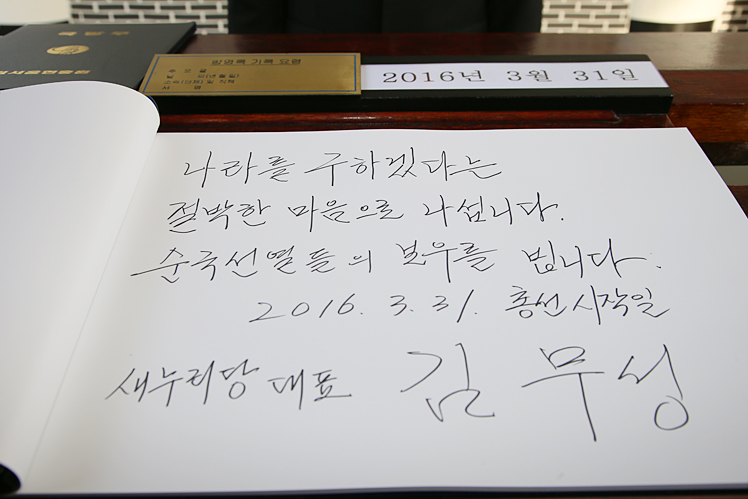 방명록 기록 요령
2016년 3월 31일
나라를 구하겠다는
절박한 마음으로 나섭니다.
순국선열들의 보우를 빕니다.
2016. 3. 31. 총선시작일
새누리당 대표 김무성